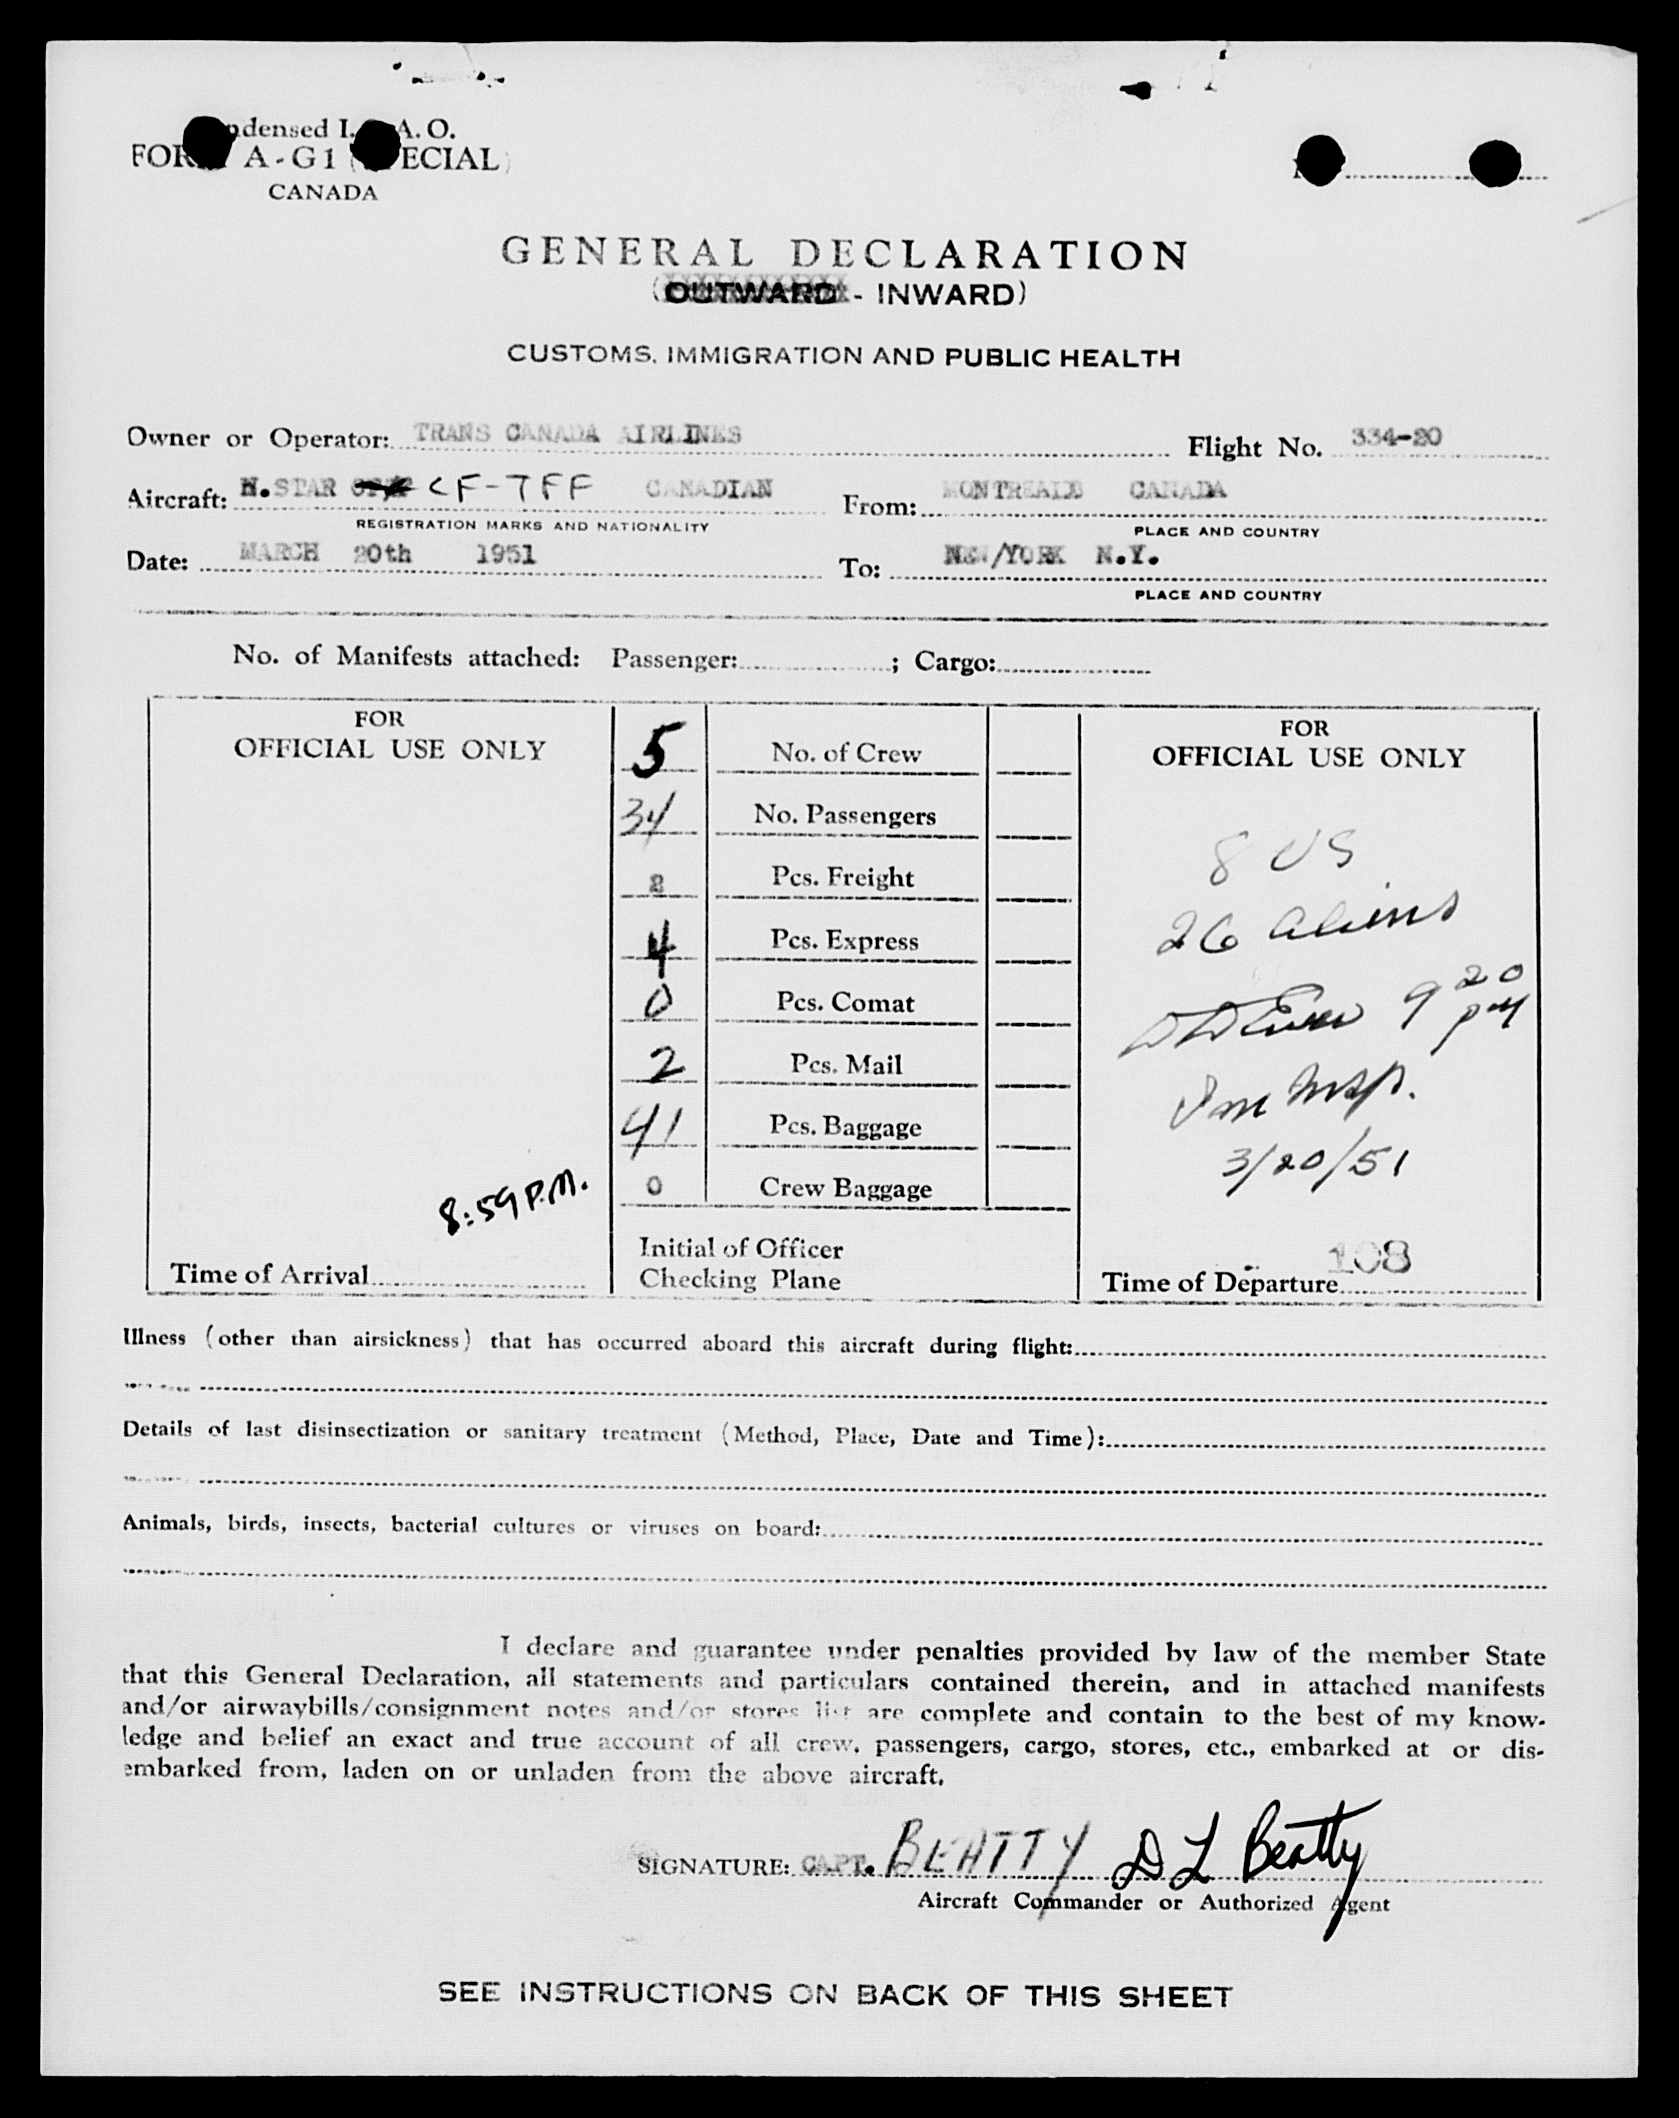 Condensed I.C.A.O.
FORM A-G1 (SPECIAL)
CANADA
GENERAL DECLARATION
(OUTWARD - INWARD)
CUSTOMS, IMMIGRATION AND PUBLIC HEALTH
Owner or Operator: TRANS CANADA AIRLINES
Flight No. 334-20
Aircraft: N.STAR CF-TFF CANADIAN
From: MONTREAL CANADA
REGISTRATION MARKS AND NATIONALITY
PLACE AND COUNTRY
Date: MARCH 20th 1951
To: NEW/YORK N.Y.
PLACE AND COUNTRY
No. of Manifests attached: Passenger: ; Cargo:
FOR
OFFICIAL USE ONLY
5 No. of Crew
34 No. Passengers
2 Pcs. Freight
4 Pcs. Express
0 Pcs. Comat
2 Pcs. Mail
41 Pcs. Baggage
0 Crew Baggage
8:59 P.M.
Time of Arrival
Initial of Officer
Checking Plane
FOR
OFFICIAL USE ONLY
8 US
26 aliens
9 20 pm
Imm Insp.
3/20/51
108
Time of Departure
Illness (other than airsickness) that has occurred aboard this aircraft during flight:
Details of last disinsectization or sanitary treatment (Method, Place, Date and Time):
Animals, birds, insects, bacterial cultures or viruses on board:
I declare and guarantee under penalties provided by law of the member State
that this General Declaration, all statements and particulars contained therein, and in attached manifests
and/or airwaybills/consignment notes and/or stores list are complete and contain to the best of my know-
ledge and belief an exact and true account of all crew, passengers, cargo, stores, etc., embarked at or dis-
embarked from, laden on or unladen from the above aircraft.
SIGNATURE: CAPT. BEATTY D L Beatty
Aircraft Commander or Authorized Agent
SEE INSTRUCTIONS ON BACK OF THIS SHEET